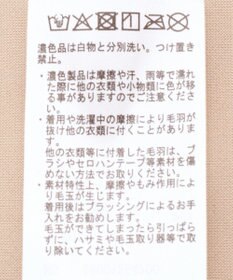 濃色品は白物と分別洗い。つけ置き
禁止。
・濃色製品は摩擦や汗、雨等で濡れ
た際に他の衣類や小物類に色が移
る事がありますのでご注意くださ
い。
・着用や洗濯中の摩擦により毛羽が
抜け他の衣類に付くことがありま
す。
他の衣類等に付着した毛羽は、ブ
ラシやセロハンテープ等素材を傷
めない方法でお取りください。
・素材特性上、摩擦やもみ作用によ
り毛玉が生じます。
着用後はブラッシングによるお手
入れをお勧めします。
毛玉ができてしまったら引っぱら
ずに、ハサミや毛玉取り器等で取
り除いてください。